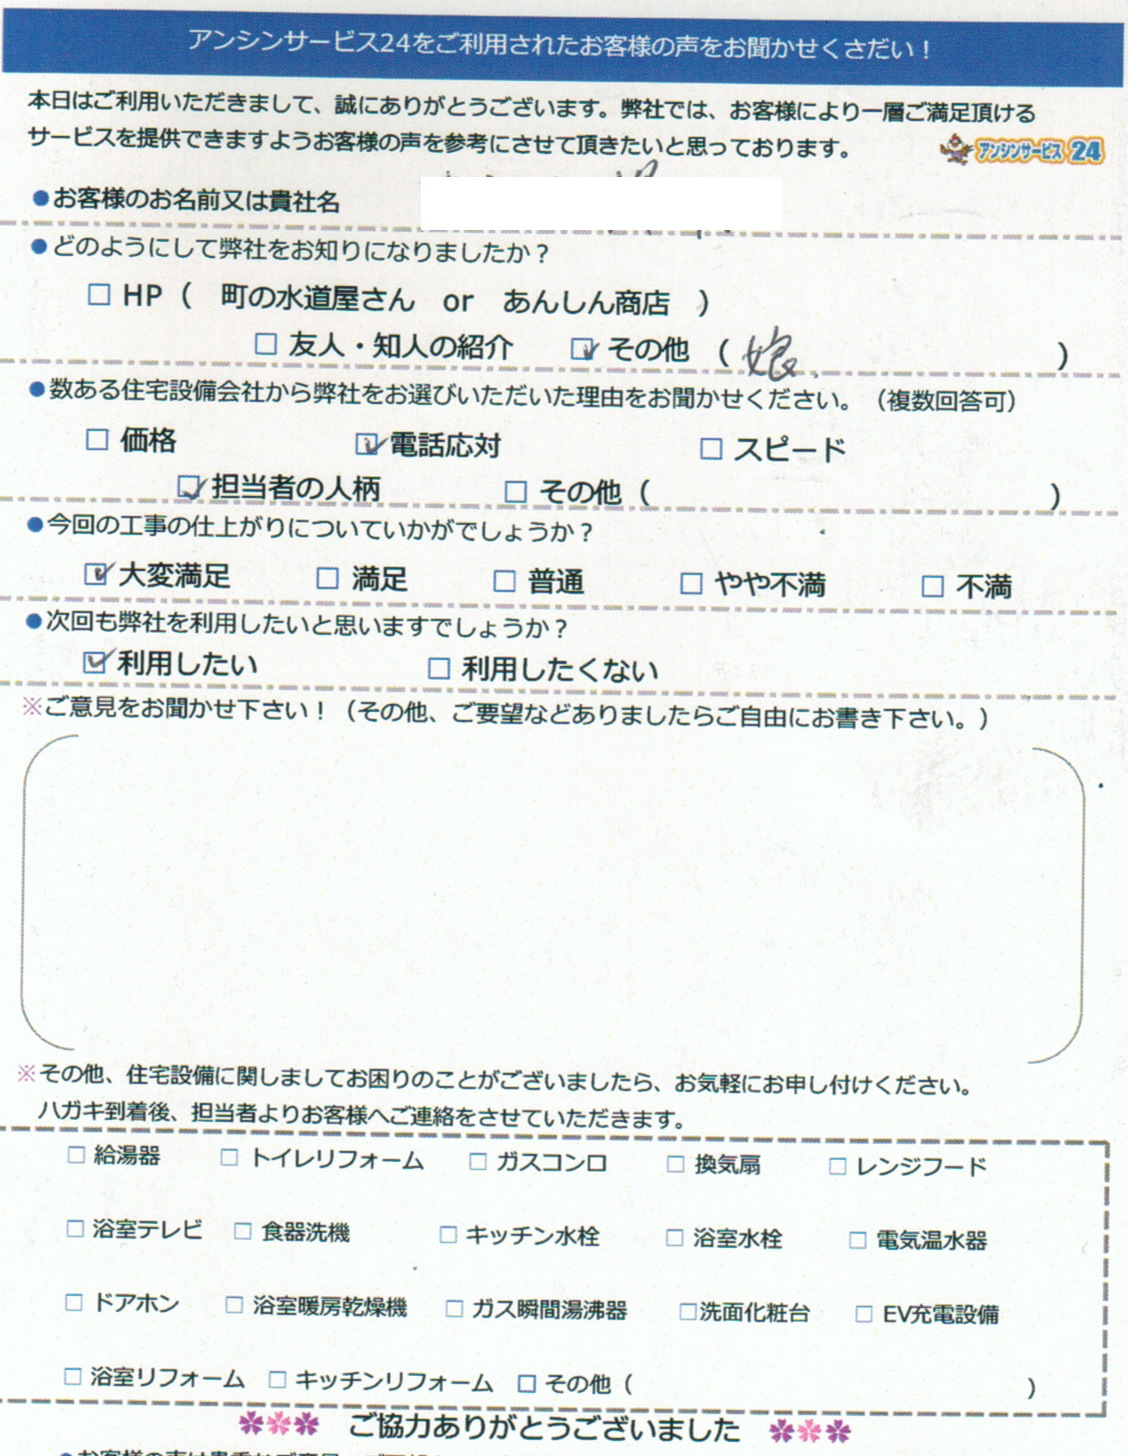 アンシンサービス24をご利用されたお客様の声をお聞かせくさだい！
本日はご利用いただきまして、誠にありがとうございます。弊社では、お客様により一層ご満足頂ける
サービスを提供できますようお客様の声を参考にさせて頂きたいと思っております。
アンシンサービス24
●お客様のお名前又は貴社名
●どのようにして弊社をお知りになりましたか？
□ HP（　町の水道屋さん　or　あんしん商店　）
□ 友人・知人の紹介　☑ その他　（ 娘　）
●数ある住宅設備会社から弊社をお選びいただいた理由をお聞かせください。（複数回答可）
□ 価格　☑ 電話応対　□ スピード
☑ 担当者の人柄　□ その他（　）
●今回の工事の仕上がりについていかがでしょうか？
☑ 大変満足　□ 満足　□ 普通　□ やや不満　□ 不満
●次回も弊社を利用したいと思いますでしょうか？
☑ 利用したい　□ 利用したくない
※ご意見をお聞かせ下さい！（その他、ご要望などありましたらご自由にお書き下さい。）
※その他、住宅設備に関しましてお困りのことがございましたら、お気軽にお申し付けください。
ハガキ到着後、担当者よりお客様へご連絡をさせていただきます。
□ 給湯器　□ トイレリフォーム　□ ガスコンロ　□ 換気扇　□ レンジフード
□ 浴室テレビ　□ 食器洗機　□ キッチン水栓　□ 浴室水栓　□ 電気温水器
□ ドアホン　□ 浴室暖房乾燥機　□ ガス瞬間湯沸器　□洗面化粧台　□ EV充電設備
□ 浴室リフォーム　□ キッチンリフォーム　□ その他（　）
ご協力ありがとうございました